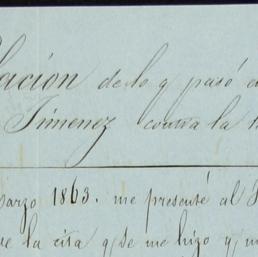 lación de lo q pasó e
Jimenez contra la
arzo 1863. me presenté al
la cita q se me hizo y